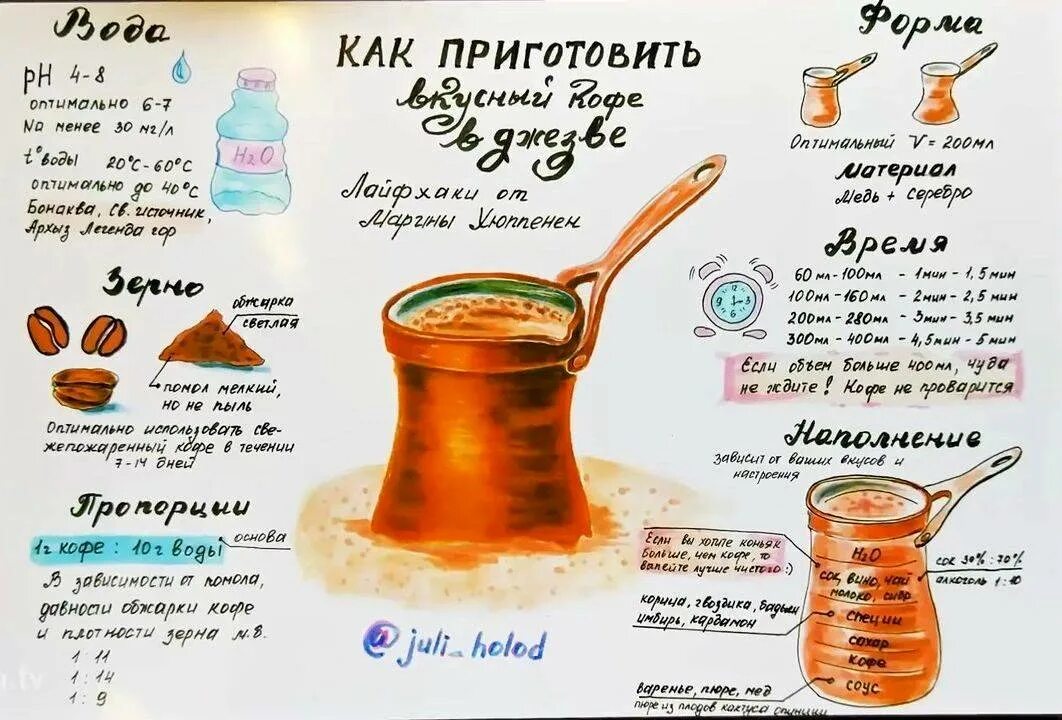 КАК ПРИГОТОВИТЬ
вкусный кофе
в джезве
Лайфхаки от
Марины Хюппенен
Вода
pH 4-8
оптимально 6-7
Na менее 30 мг/л
t° воды 20°C-60°C
оптимально до 40°C
Бонаква, Св. источник,
Архыз Легенда гор
H2O
Зерно
обжарка
светлая
помол мелкий,
но не пыль
Оптимально использовать све-
жепожаренный кофе в течении
7-14 дней
Пропорции
1г кофе : 10г воды
основа
В зависимости от помола,
давности обжарки кофе
и плотности зерна м.б.
1 : 11
1 : 14
1 : 9
@juli_holod
Форма
Оптимальный V = 200мл
Материал
Медь + серебро
Время
12
3
6
9
60 мл - 100мл - 1мин - 1,5 мин
100мл - 160 мл - 2мин - 2,5 мин
200мл - 280мл - 3мин - 3,5 мин
300мл - 400мл - 4,5мин - 5 мин
Если объем больше 400мл, чуда
не ждите! Кофе не проварится
Наполнение
Зависит от ваших вкусов и
настроения
Если вы хотите коньяк
больше, чем кофе, то
выпейте лучше чистого :)
корица, гвоздика, бадьян
имбирь, кардамон
варенье, пюре, мед
пюре из плодов кактуса опунции
H2O
сок, вино, чай
молоко, сидр
специи
сахар
кофе
соус
сок 30% : 70%
алкоголь 1:10
.tv